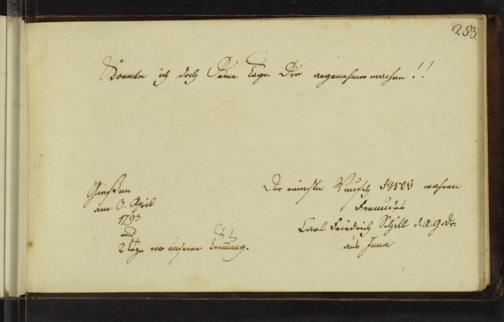 253
Könnte ich doch Deine Tage Dir angenehmer machen!!
Giessen
am 3. April
1793
und
2 Tage vor unserer Trennung.
Der reinste Wunsch Ihres wahren
Freundes
Carl Friedrich Schill d. a. G. Dr.
aus